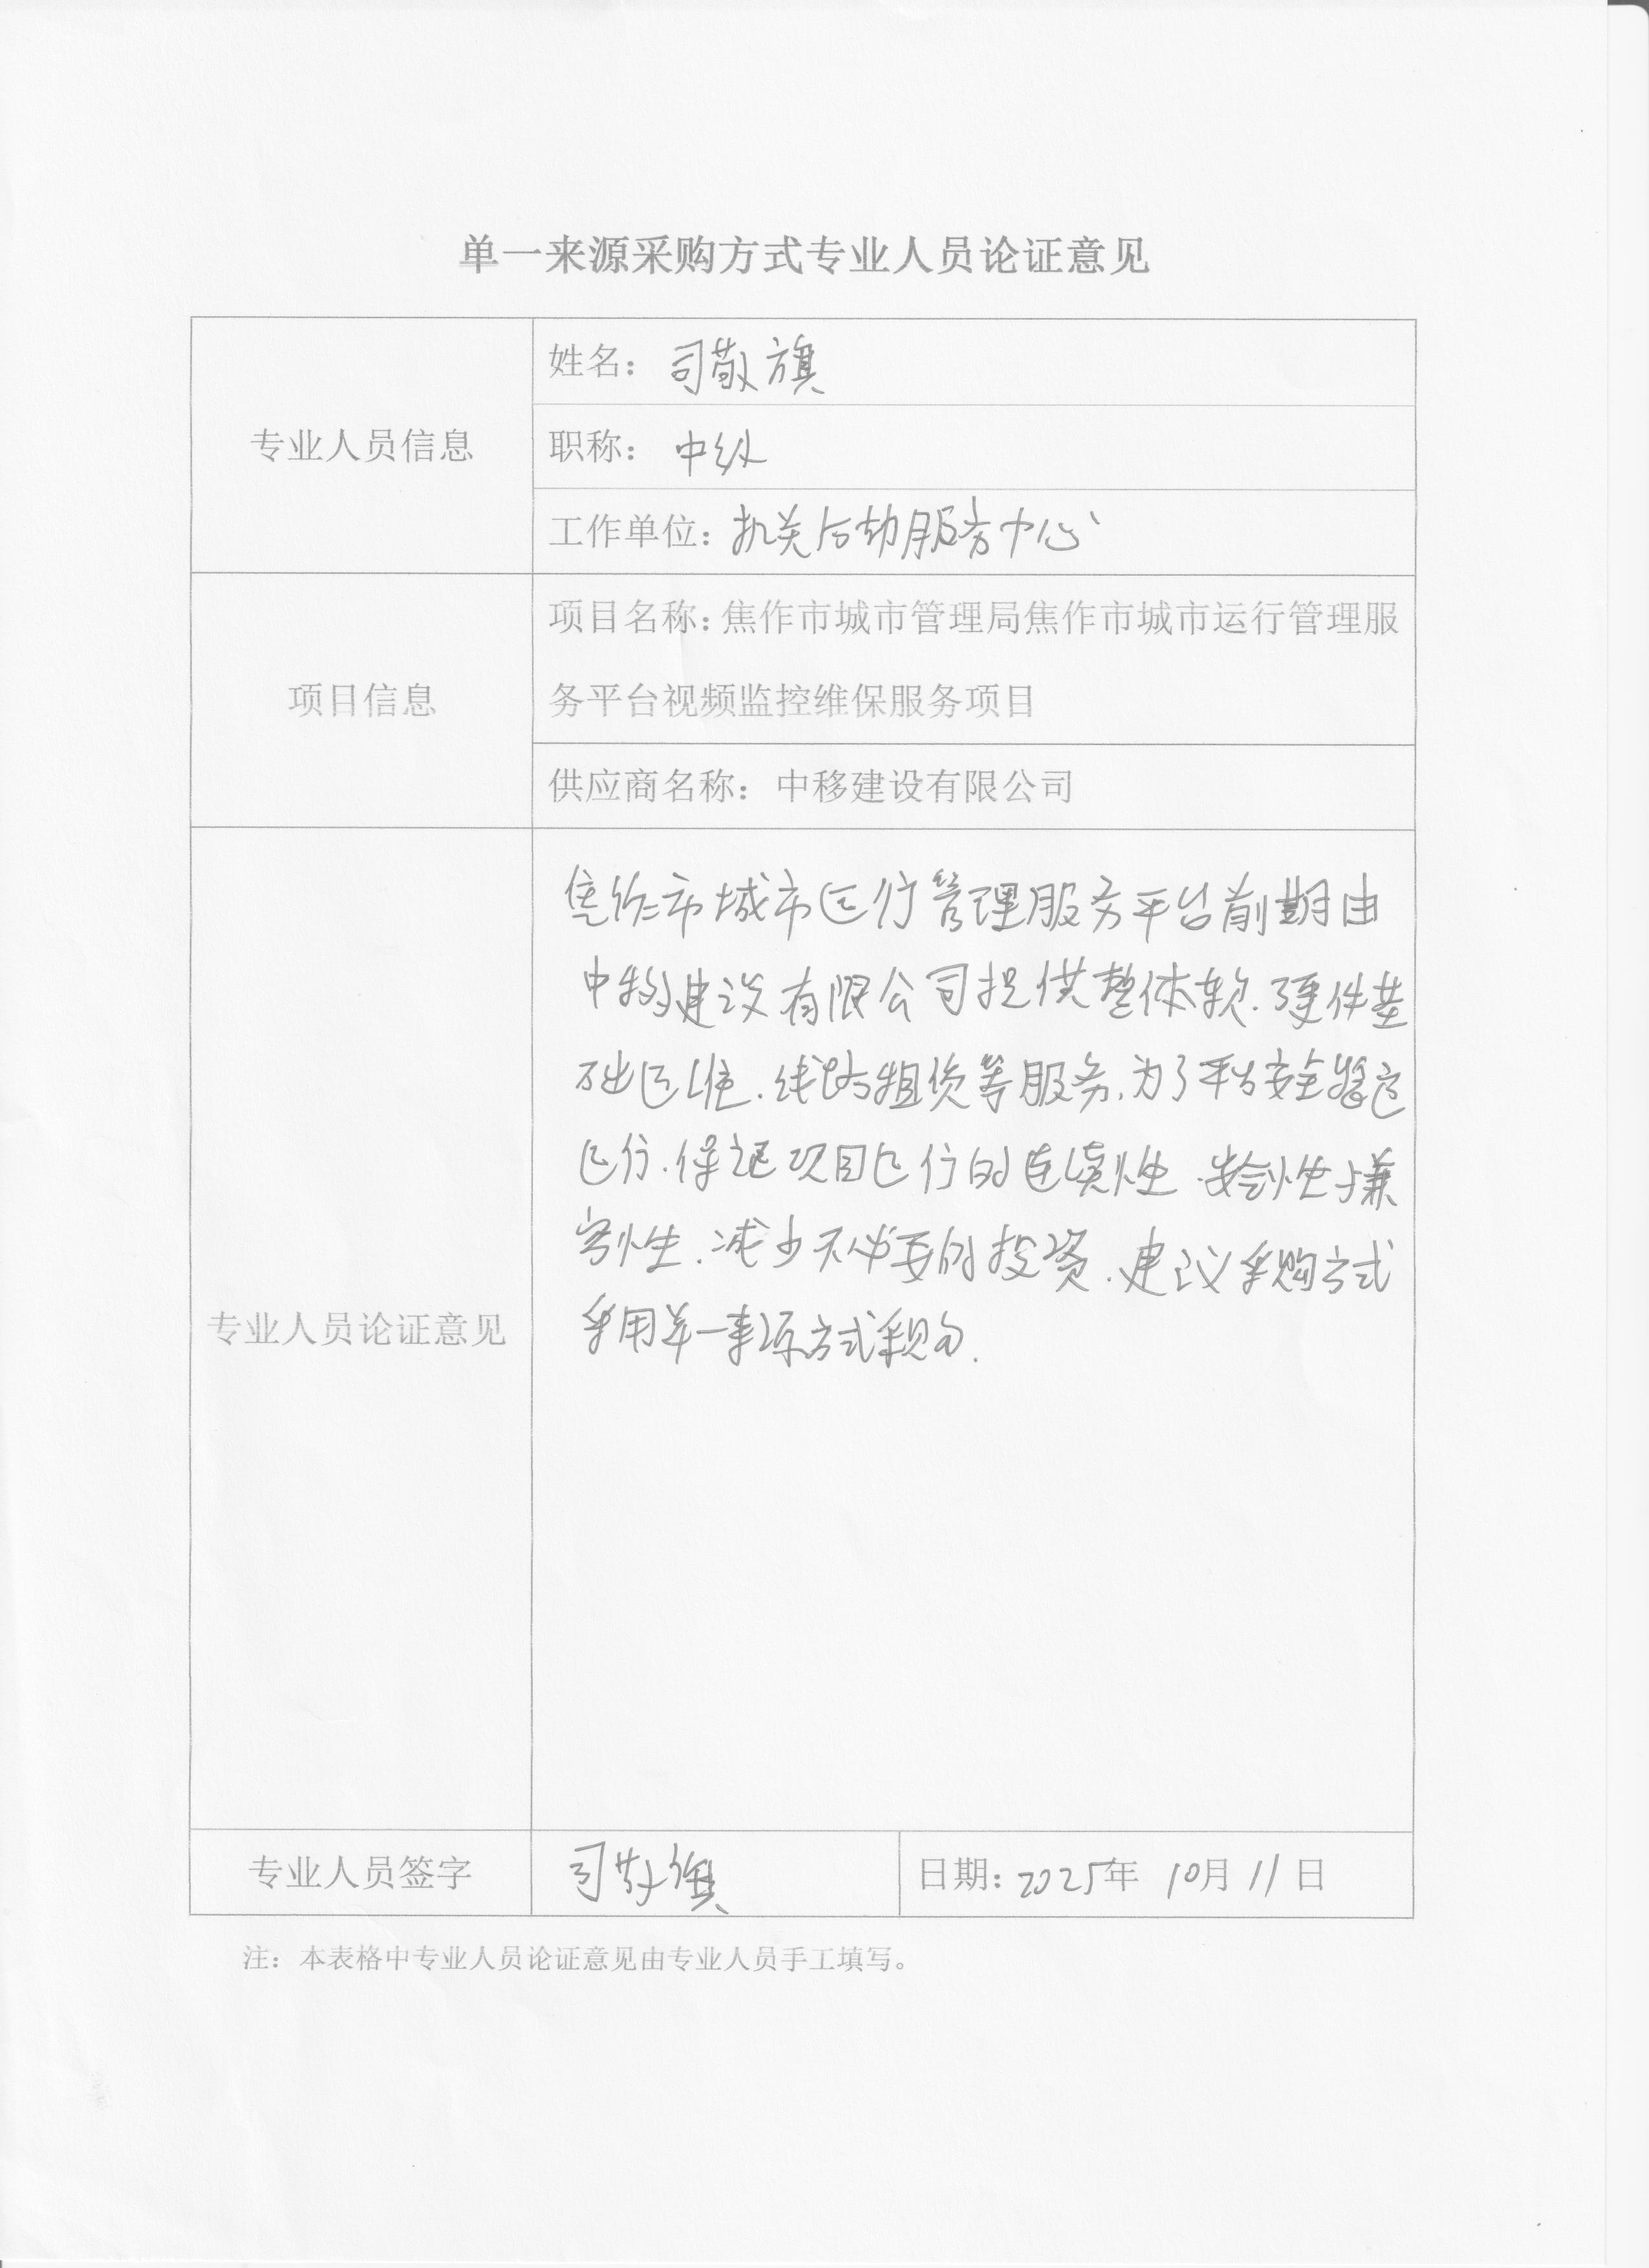 单一来源采购方式专业人员论证意见
专业人员信息
姓名：司敬旗
职称：中级
工作单位：机关后勤服务中心
项目信息
项目名称：焦作市城市管理局焦作市城市运行管理服
务平台视频监控维保服务项目
供应商名称：中移建设有限公司
专业人员论证意见
焦作市城市运行管理服务平台前期由
中移建设有限公司提供整体软、硬件基
础运维、线路租赁等服务，为了平台安全稳定
运行、保证项目运行的连续性、安全性与兼
容性、减少不必要的投资、建议采购方式
采用单一来源方式采购.
专业人员签字
司敬旗
日期：2025年 10月 11日
注：本表格中专业人员论证意见由专业人员手工填写。